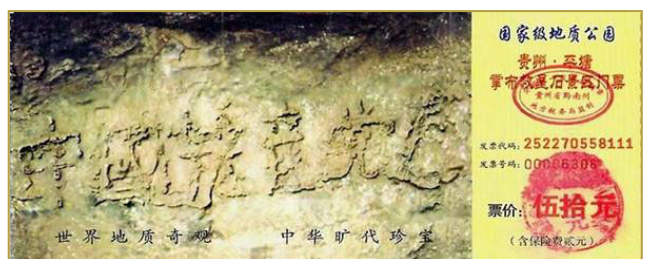 中國共産党亡
世界地质奇观 中华旷代珍宝
国家级地质公园
贵州·平塘
掌布救星石景区门票
贵州省黔南州
地方税务局监制
发票代码: 252270558111
发票号码:
票价: 伍拾元
(含保险费贰元)